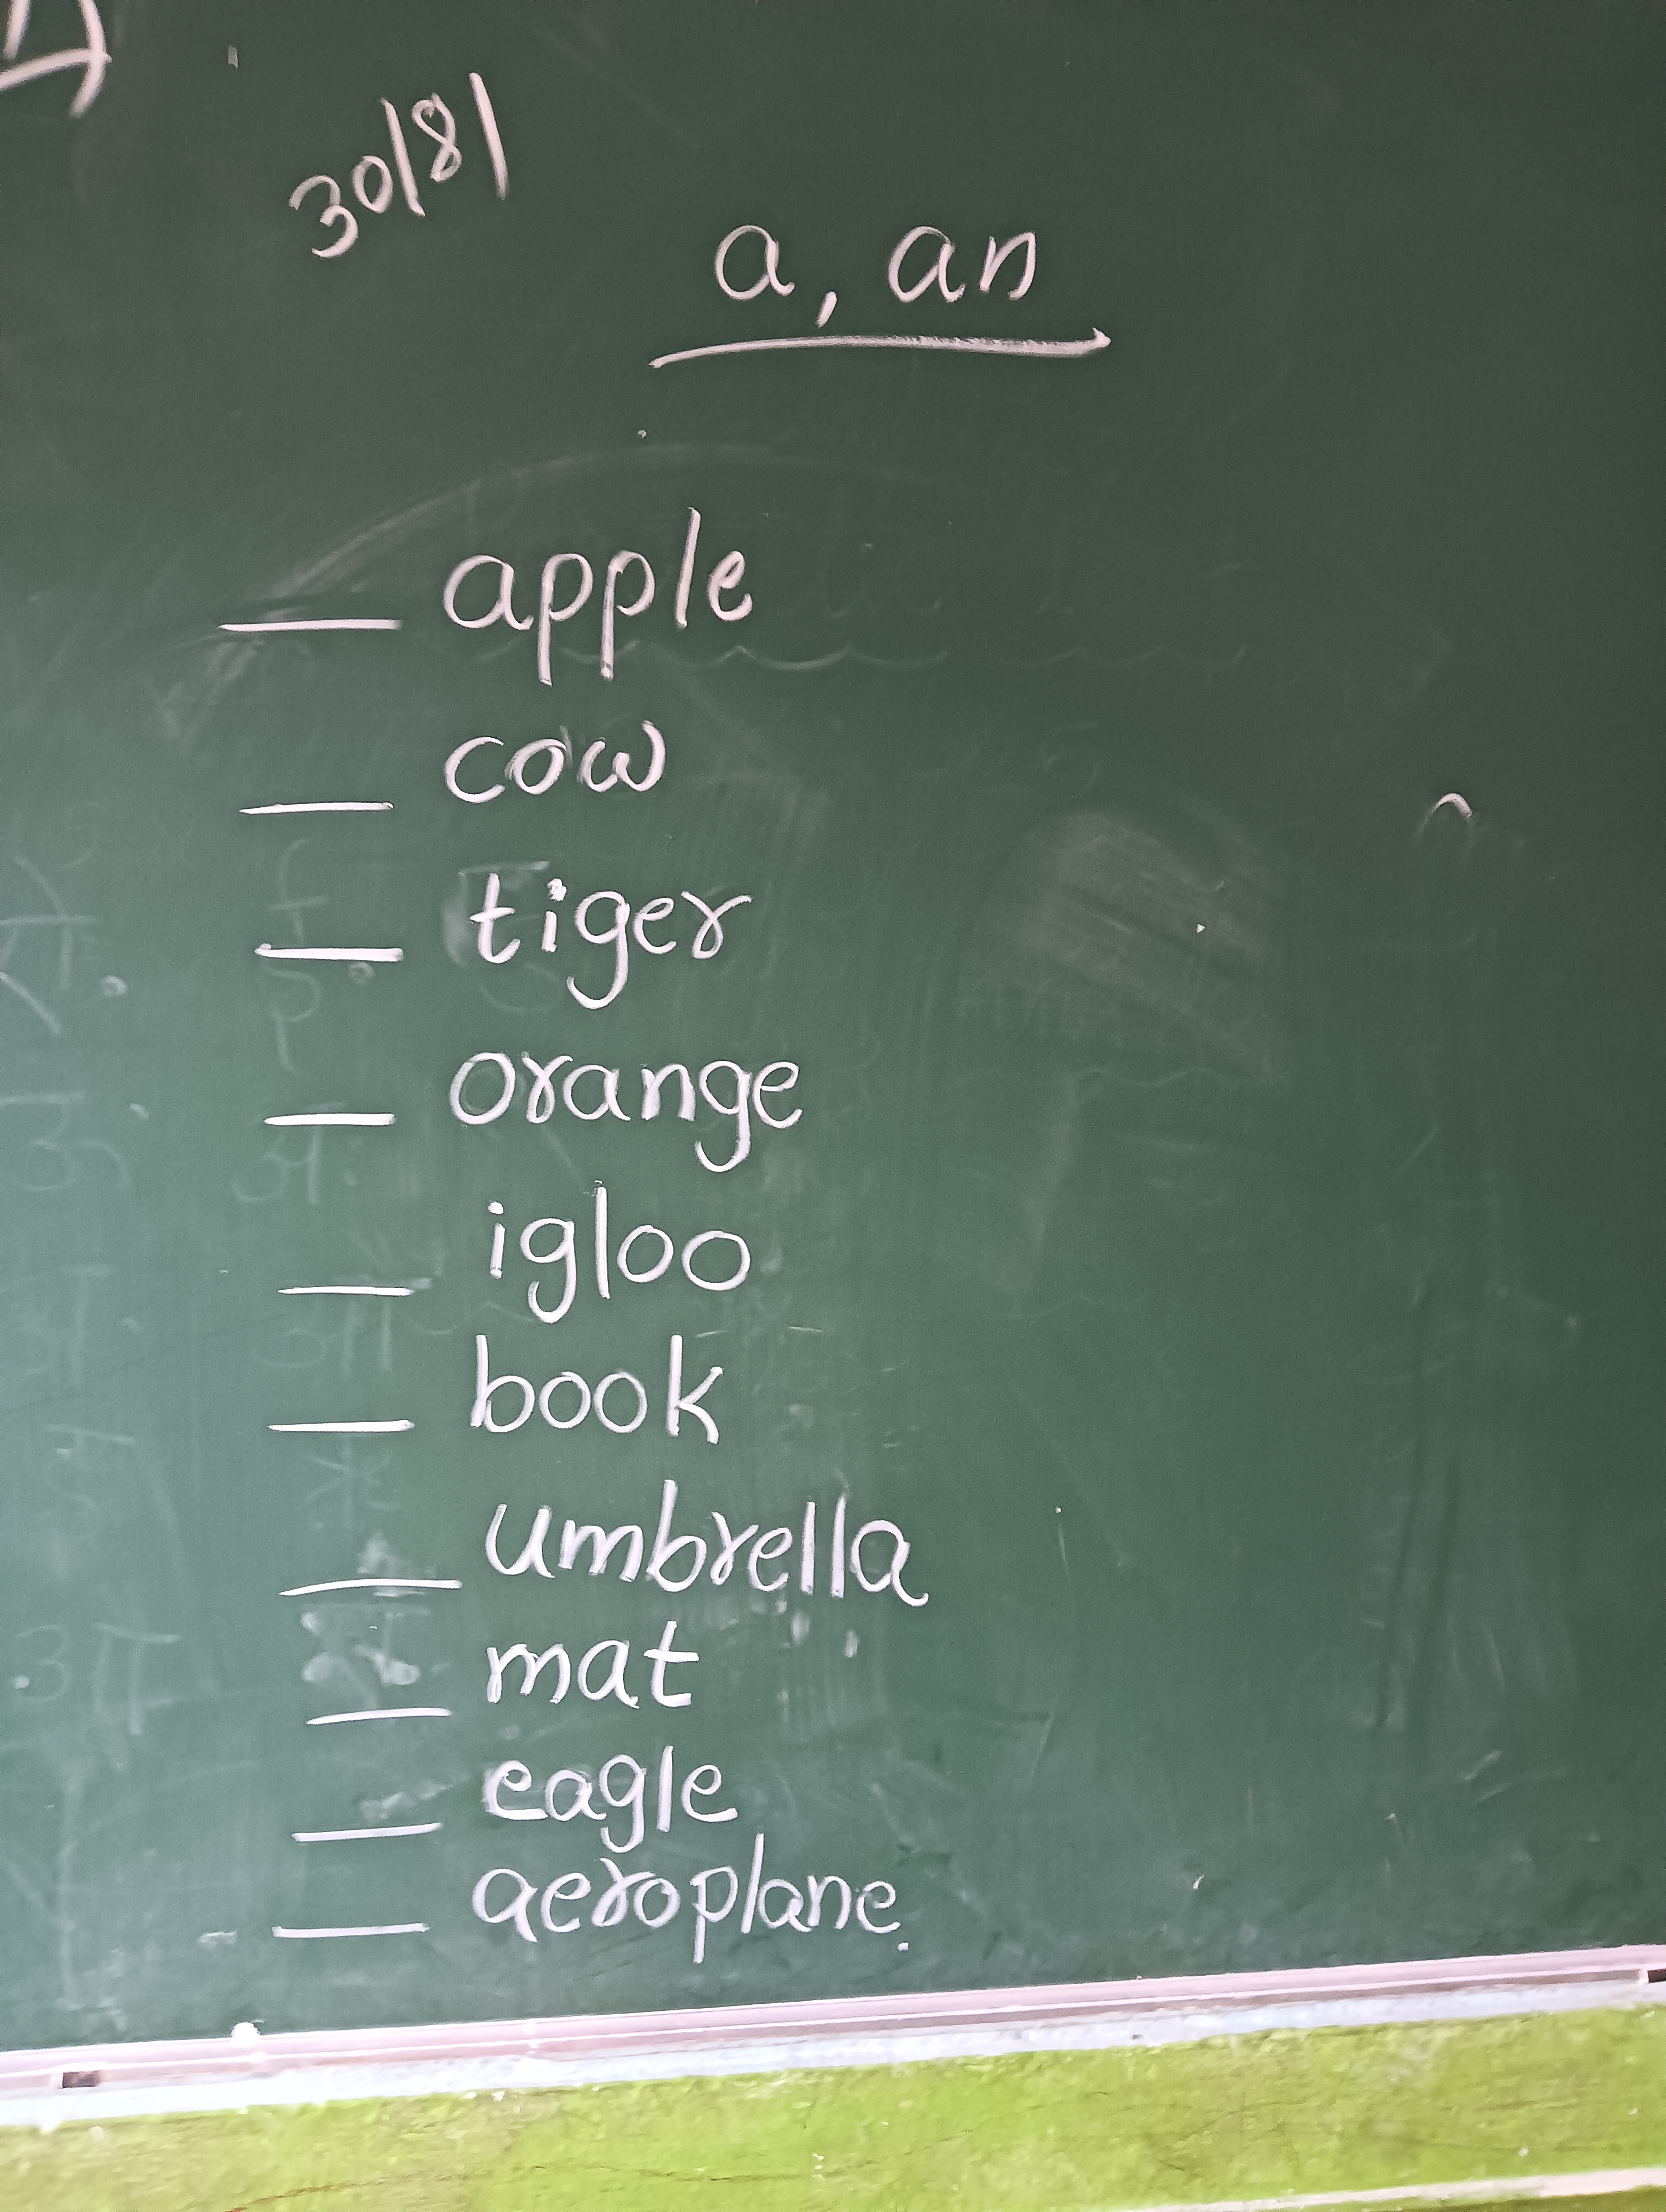 30/8/
a, an
__ apple
__ cow
__ tiger
__ orange
__ igloo
__ book
__ umbrella
__ mat
__ eagle
__ aeroplane.